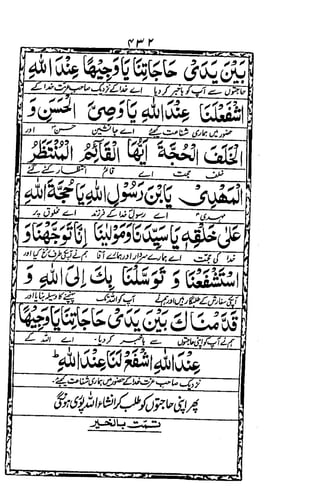 ۴۳۲
بَيْنَ يَدَىْ حَاجَاتِنَا يَا وَجِيْهًا عِنْدَ اللهِ
حاجتوں سے آپ کو باخبر کر دیا اے خدا کے نزدیک صاحب عزت خدا کے
اشْفَعْ لَنَا عِنْدَ اللهِ يَا وَصِىَّ الْحَسَنِ وَ
حضور میں ہماری شفاعت کیجئے اے جانشین حسن اور
الْخَلَفَ الْحُجَّةَ اَيُّهَا الْقَائِمُ الْمُنْتَظَرُ
خلف حجت اے قائم انتظار کئے گئے
الْمَهْدِىُّ يَا بْنَ رَسُوْلِ اللهِ يَا حُجَّةَ اللهِ
مہدی اے رسول خدا کے فرزند اے مخلوق پر
عَلٰى خَلْقِهٖ يَا سَيِّدَنَا وَمَوْلٰينَا اِنَّا تَوَجَّهْنَا وَ
خدا کی حجت اے ہمارے سردار اور ہمارے آقا ہم نے آپکی طرف رخ کیا اور
اسْتَشْفَعْنَا وَ تَوَسَّلْنَا بِكَ اِلَى اللهِ وَ
آپکی سفارش کے طلبگار ہیں اور ہم نے آپ کو اللہ تک پہنچنے کا وسیلہ بنایا اور
قَدَّمْنَاكَ بَيْنَ يَدَىْ حَاجَاتِنَا يَا وَجِيْهًا
ہم نے آپکو اپنی حاجتوں سے باخبر کر دیا۔ اے اللہ کے
عِنْدَ اللهِ اشْفَعْ لَنَا عِنْدَ اللهِ ط
نزدیک صاحب عزت خدا کے حضور میں ہماری شفاعت کیجئے۔
پھر اپنی حاجتوں کو طلب کرے انشاء اللہ پوری ہوں گی
تمت بالخیر